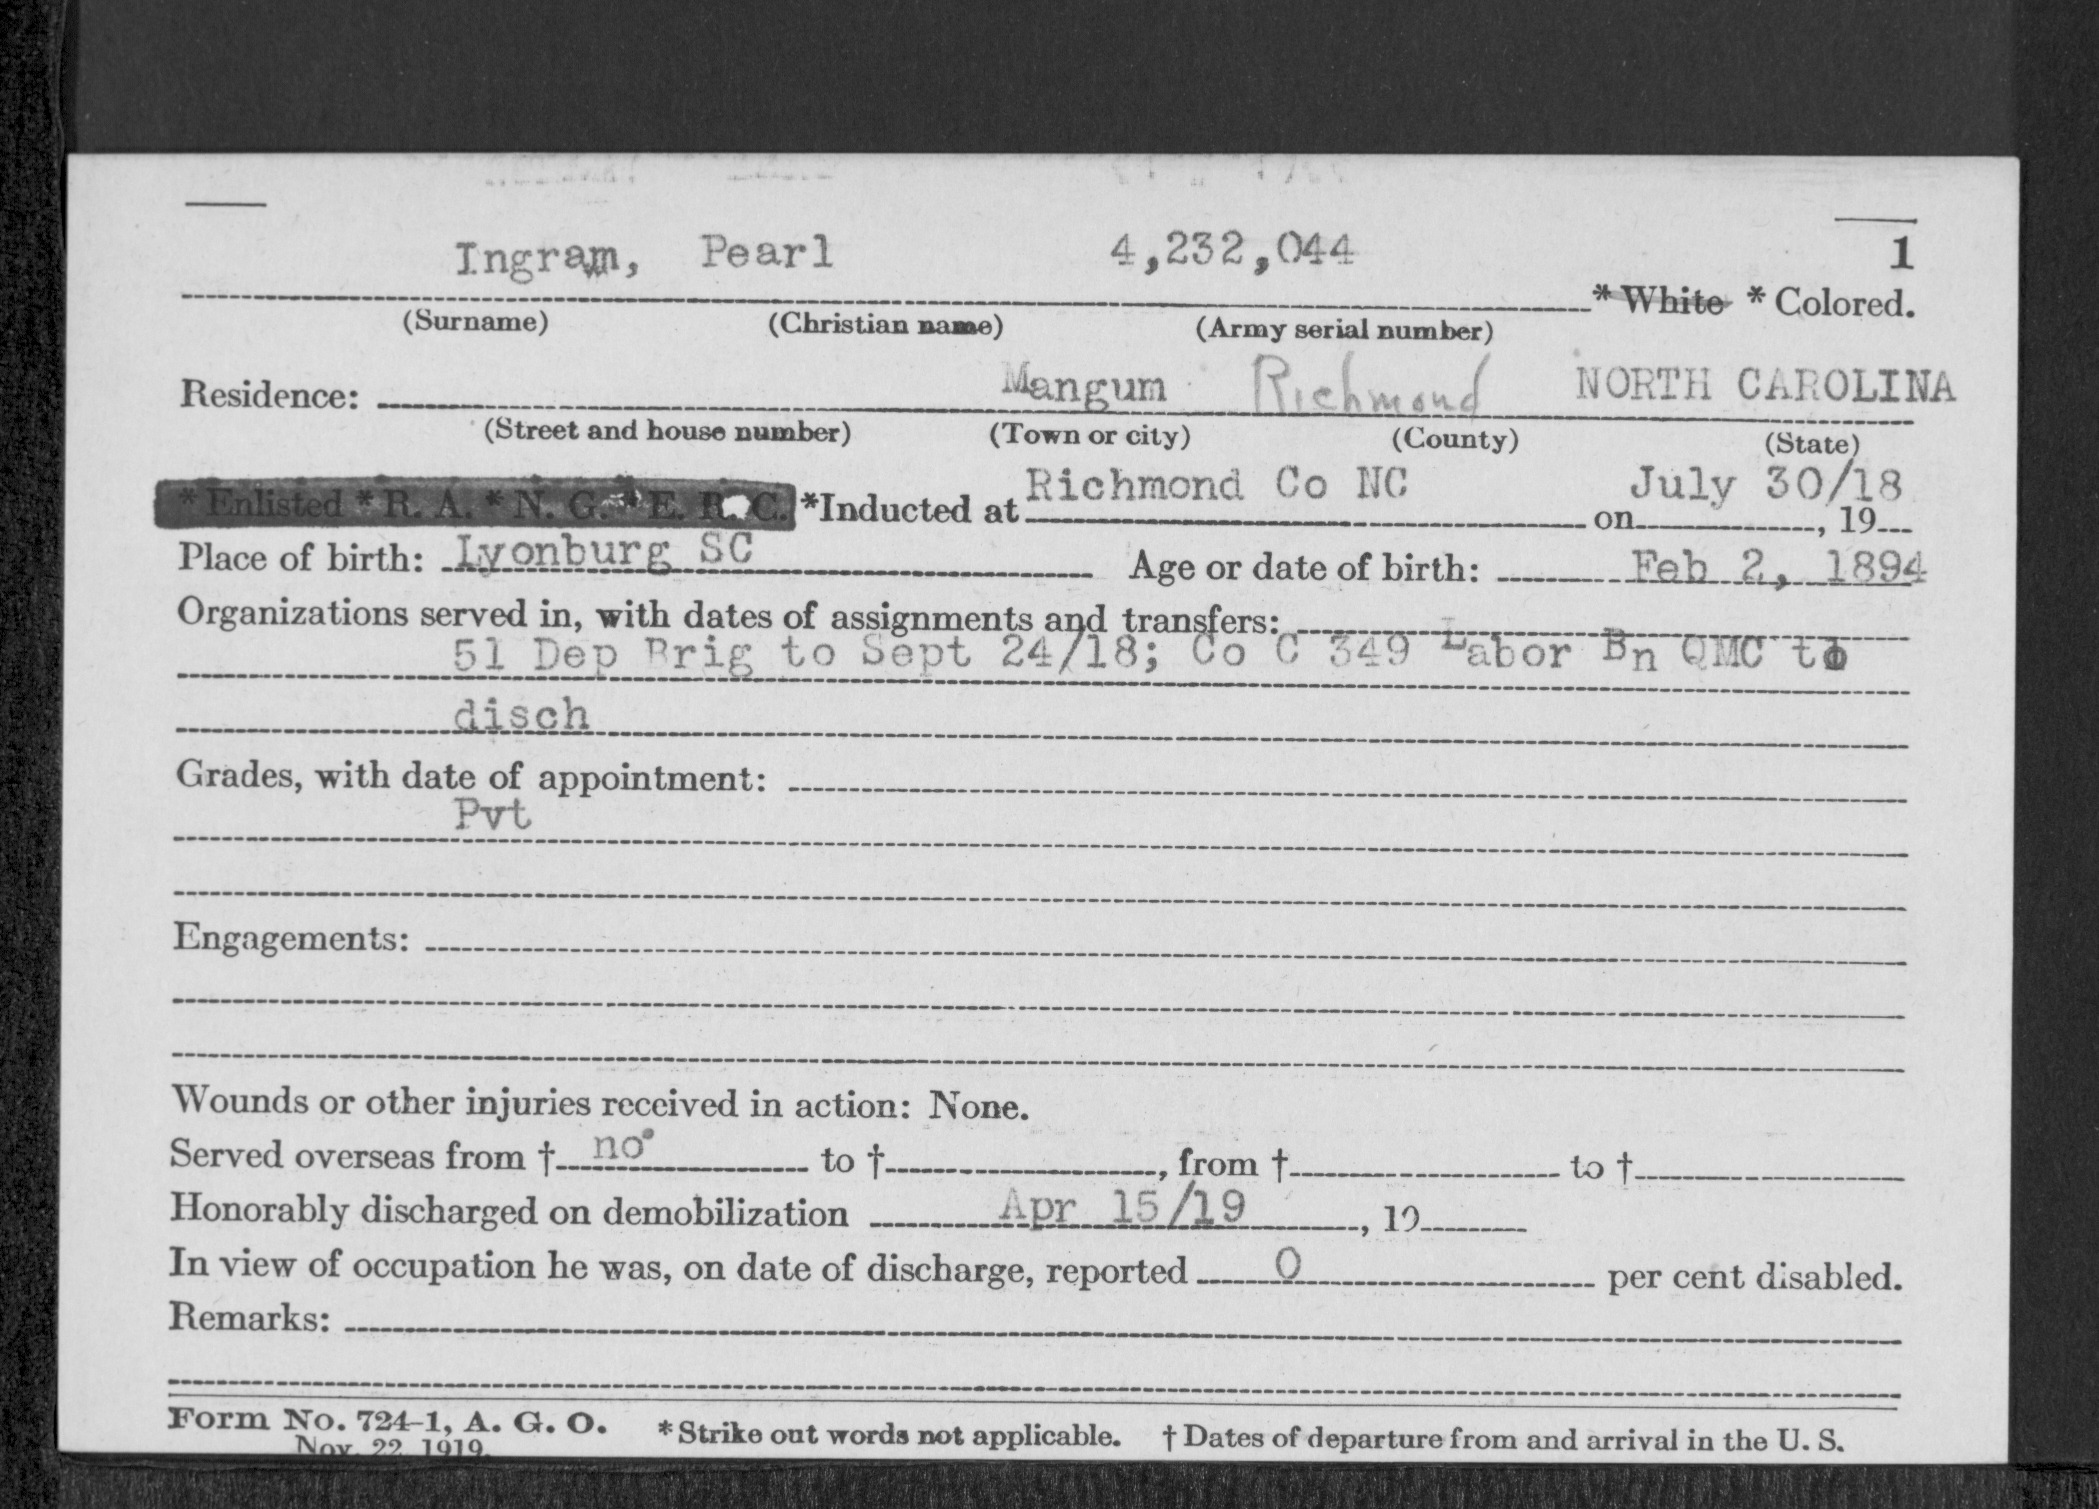 Ingram, Pearl 4,232,044 1
* White * Colored.
(Surname) (Christian name) (Army serial number)
Residence: Mangum Richmond NORTH CAROLINA
(Street and house number) (Town or city) (County) (State)
* Enlisted * R. A. * N. G. * E. R. C. *Inducted at Richmond Co NC on July 30/18, 19
Place of birth: Lyonburg SC Age or date of birth: Feb 2, 1894
Organizations served in, with dates of assignments and transfers:
51 Dep Brig to Sept 24/18; Co C 349 Labor Bn QMC to
disch
Grades, with date of appointment:
Pvt
Engagements:
Wounds or other injuries received in action: None.
Served overseas from † no to †, from † to †
Honorably discharged on demobilization Apr 15/19, 19
In view of occupation he was, on date of discharge, reported 0 per cent disabled.
Remarks:
Form No. 724-1, A. G. O. * Strike out words not applicable. † Dates of departure from and arrival in the U. S.
Nov. 22, 1919.